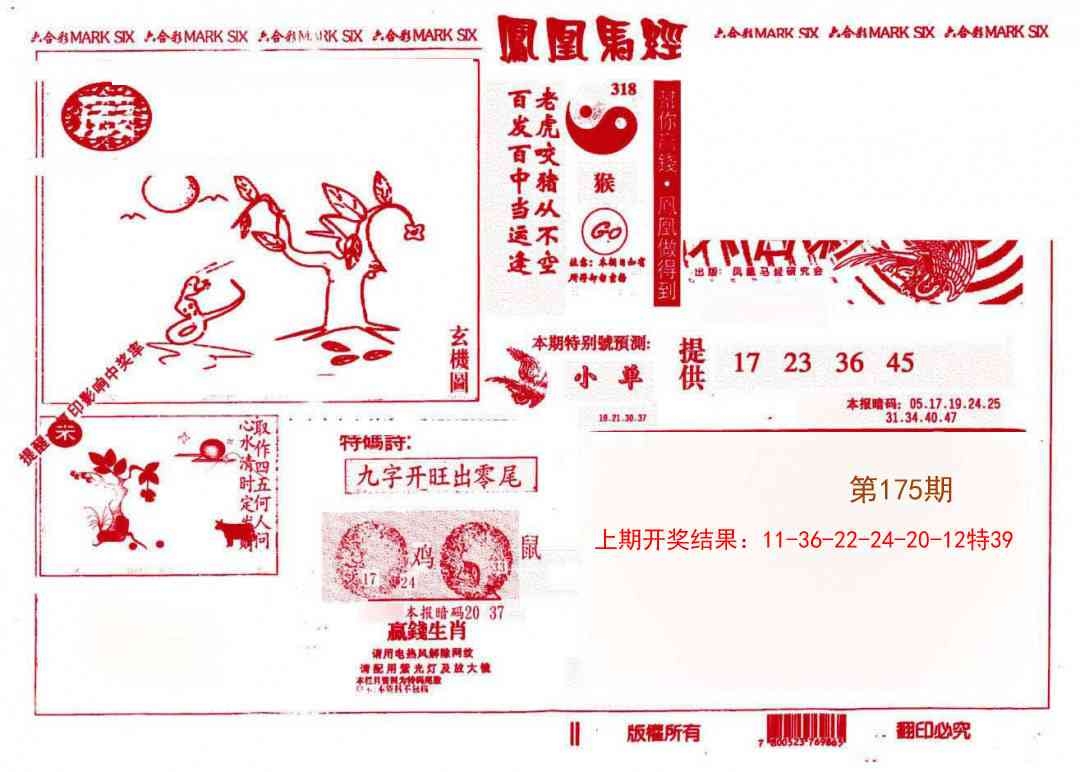 六合彩MARK SIX 六合彩MARK SIX 六合彩MARK SIX 六合彩MARK SIX
鳳凰馬經
六合彩MARK SIX 六合彩MARK SIX 六合彩MARK SIX
老虎咬猪从不空
百发百中当运逢
318
猴
Go
凤凰做得到
出版：凤凰马经研究会
玄機圖
本期特别號預测:
小单
18.21.30.37
提供
17 23 36 45
本报暗码：05.17.19.24.25
31.34.40.47
提醒
印影响中奖率
取作四五何人问
心水清时定
特碼詩:
九字开旺出零尾
第175期
上期开奖结果：11-36-22-24-20-12特39
17
24
鸡
33
鼠
本报暗码20 37
赢錢生肖
请用电热风解除网纹
请配用紫光灯及放大镜
本栏目资料为特码尾数
版權所有
7 800523 769865
翻印必究